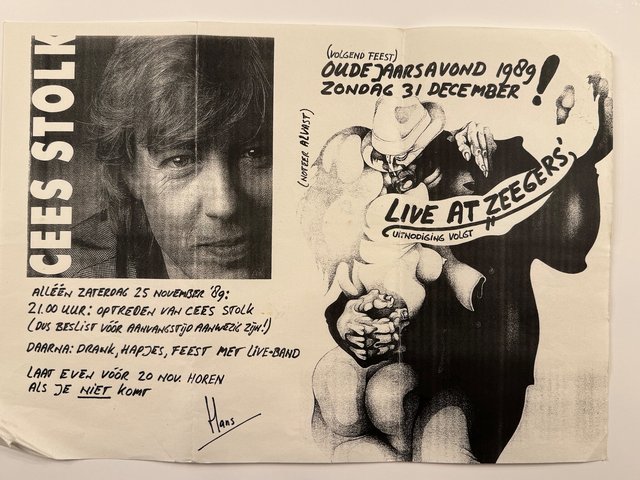 CEES STOLK
ALLÉÉN ZATERDAG 25 NOVEMBER '89:
21.00 UUR: OPTREDEN VAN CEES STOLK
(DUS BESLIST VÓÓR AANVANGSTIJD AANWEZIG ZIJN!)
DAARNA: DRANK, HAPJES, FEEST MET LIVE-BAND
LAAT EVEN VÓÓR 20 NOV. HOREN
ALS JE NIET KOMT
Hans
(VOLGEND FEEST)
OUDEJAARSAVOND 1989
ZONDAG 31 DECEMBER!
(NOTEER ALVAST)
"LIVE AT ZEEGERS"
UITNODIGING VOLGT